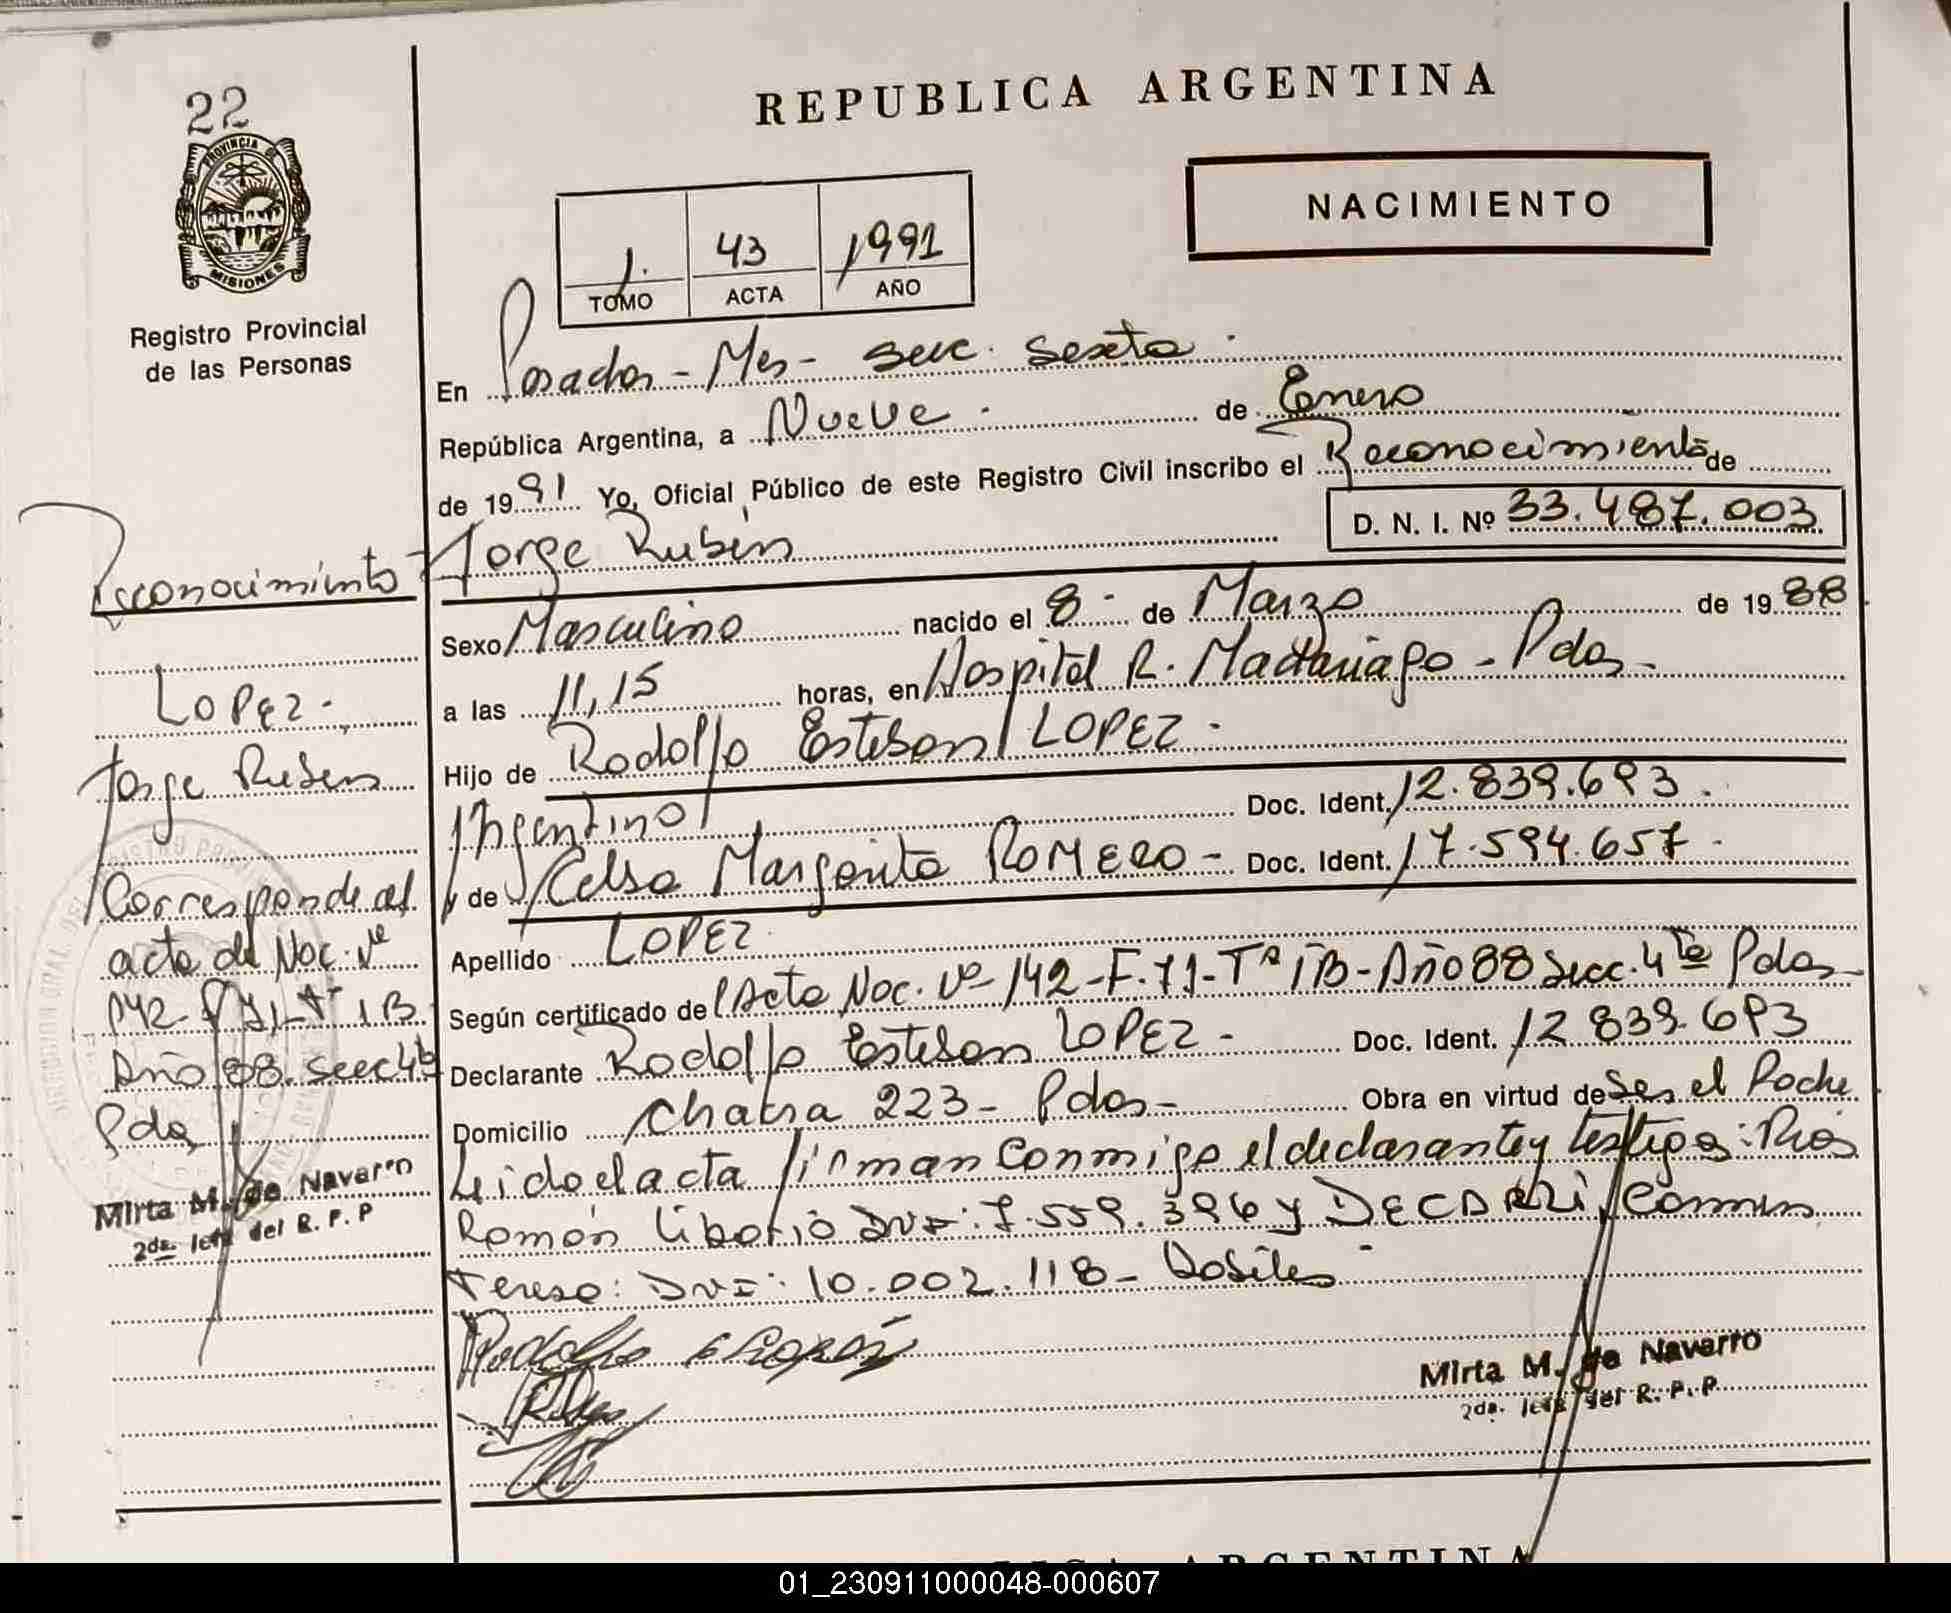 22
REPUBLICA ARGENTINA
NACIMIENTO
PROVINCIA DE
MISIONES
Registro Provincial
de las Personas
1. 43 1991
TOMO ACTA AÑO
En Posadas - Mes - Secc. Sexta.
República Argentina, a Nueve. de Enero
de 1991 Yo, Oficial Público de este Registro Civil inscribo el Reconocimiento de
Jorge Rubén D. N. I. Nº 33.487.003
Sexo Masculino nacido el 8 - de Marzo de 1988
a las 11,15 horas, en Hospital R. Madariaga - Pdas -
Hijo de Rodolfo Esteban LOPEZ -
Argentino Doc. Ident. 12.839.693.
y de Celsa Margarita ROMERO - Doc. Ident. 17.594.657 -
Apellido LOPEZ
Según certificado de Acta Nac. Nº 142 - F. 71 - Tº 1B - Año 88 Secc. 4ta Pdas -
Declarante Rodolfo Esteban LOPEZ - Doc. Ident. 12.839.693
Domicilio Chacra 223 - Pdas - Obra en virtud de Ser el Padre
Leido el acta firman conmigo el declarante y testigos: Rios
Ramón Liborio DNI: 7.559.396 y Carmen
Teresa: DNI: 10.002.118 -
Rodolfo E Lopez
Mirta M. de Navarro
2da. Jefa del R. P. P
Reconocimiento
LOPEZ -
Jorge Ruben
Corresponde al
acta de Nac. Nº
142 F 71 - Tº 1B
Año 88. Secc 4ta
Pdas
Mirta M. de Navarro
2da. Jefa del R. P. P
ARGENTINA
01_230911000048-000607